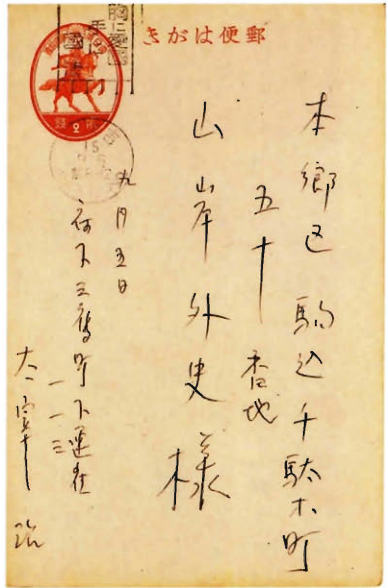 郵便はがき
本郷区駒込千駄木町
五十番地
山岸外史様
九月五日
府下三鷹町下連雀
一一三
太宰治